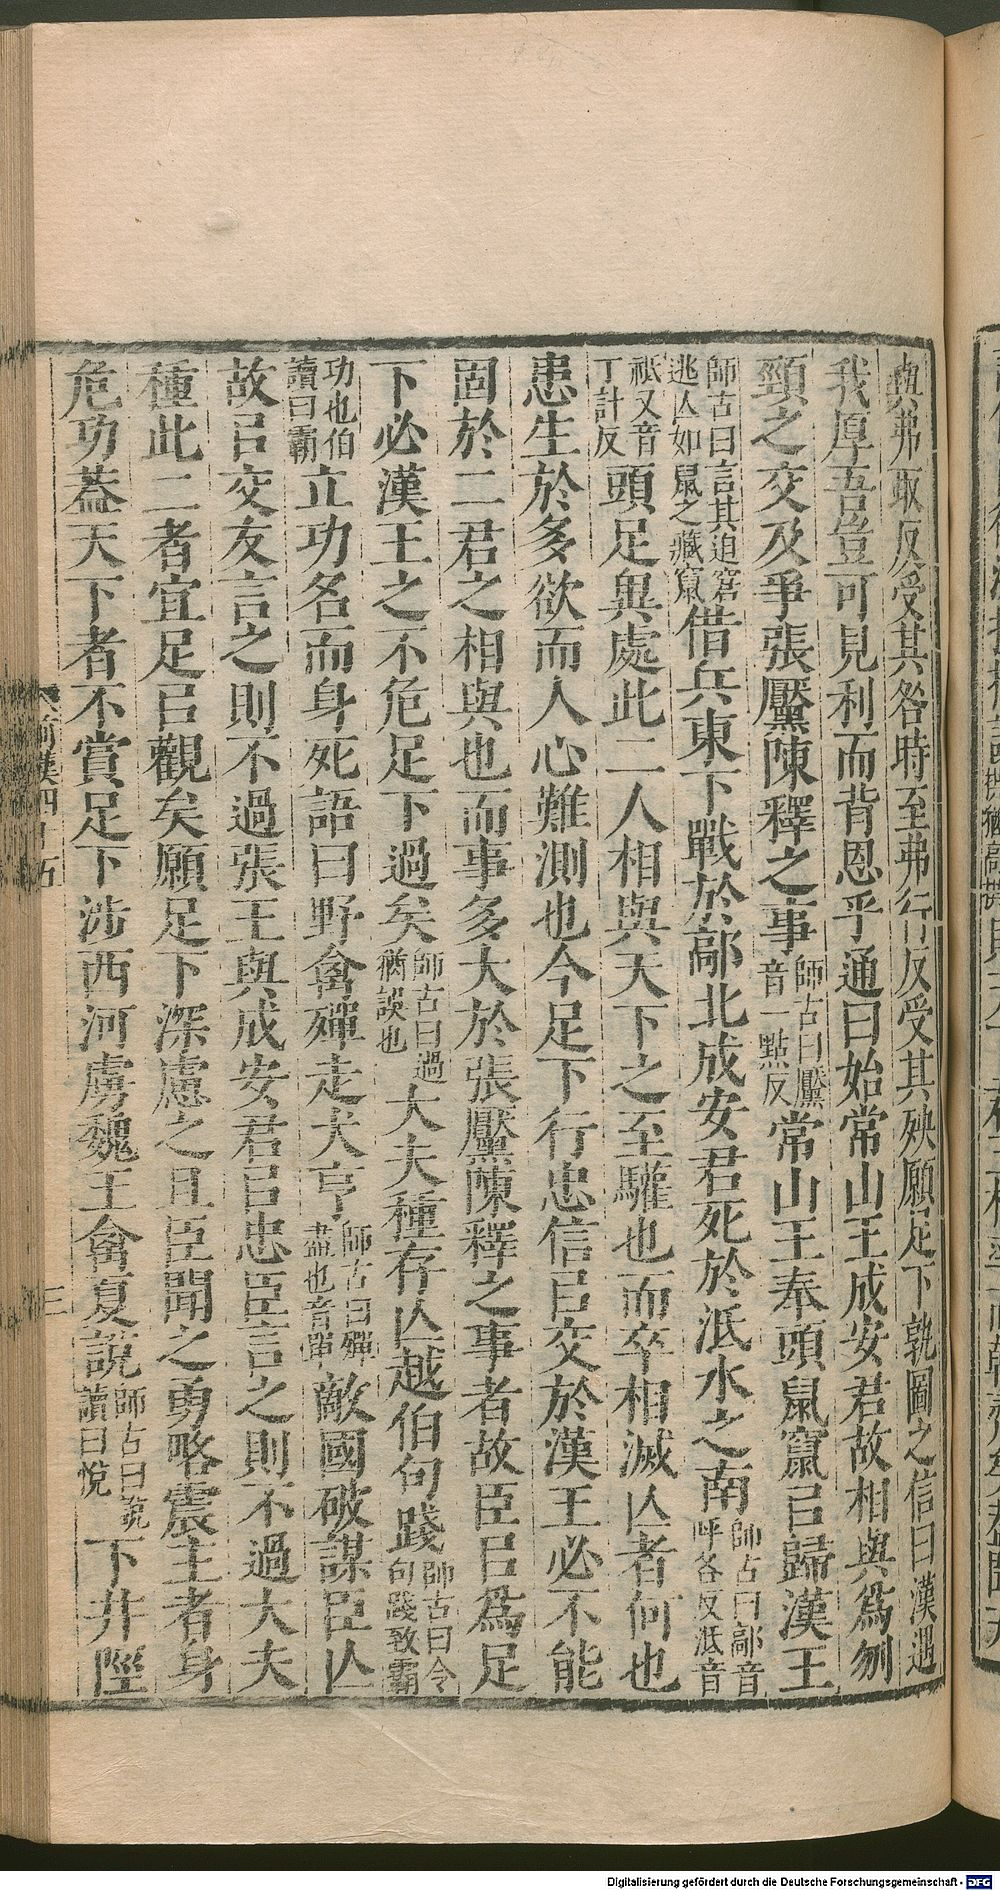 與弗取反受其咎時至弗行反受其殃願足下孰圖之信曰漢遇
我厚吾豈可見利而背恩乎通曰始常山王成安君故相與爲刎
頸之交及爭張黶陳釋之事師古曰黶音一點反常山王奉頭鼠竄㠯歸漢王
師古曰言其迫窘逃人如鼠之藏竄借兵東下戰於鄗北成安君死於泜水之南師古曰鄗音呼各反泜音
祇又音丁計反頭足異處此二人相與天下之至驩也而卒相滅亾者何也
患生於多欲而人心難測也今足下行忠信㠯交於漢王必不能
固於二君之相與也而事多大於張黶陳釋之事者故臣㠯爲足
下必漢王之不危足下過矣師古曰過猶誤也大夫種存亾越伯句踐師古曰令句踐致霸
功也伯讀曰霸立功名而身死語曰野禽殫走犬亨師古曰殫盡也音單敵國破謀臣亾
故㠯交友言之則不過張王與成安君㠯忠臣言之則不過大夫
種此二者宜足㠯觀矣願足下深慮之且臣聞之勇略震主者身
危功蓋天下者不賞足下涉西河虜魏王禽夏說師古曰說讀曰悅下井陘
前漢四十五
三
Digitalisierung gefördert durch die Deutsche Forschungsgemeinschaft - DFG